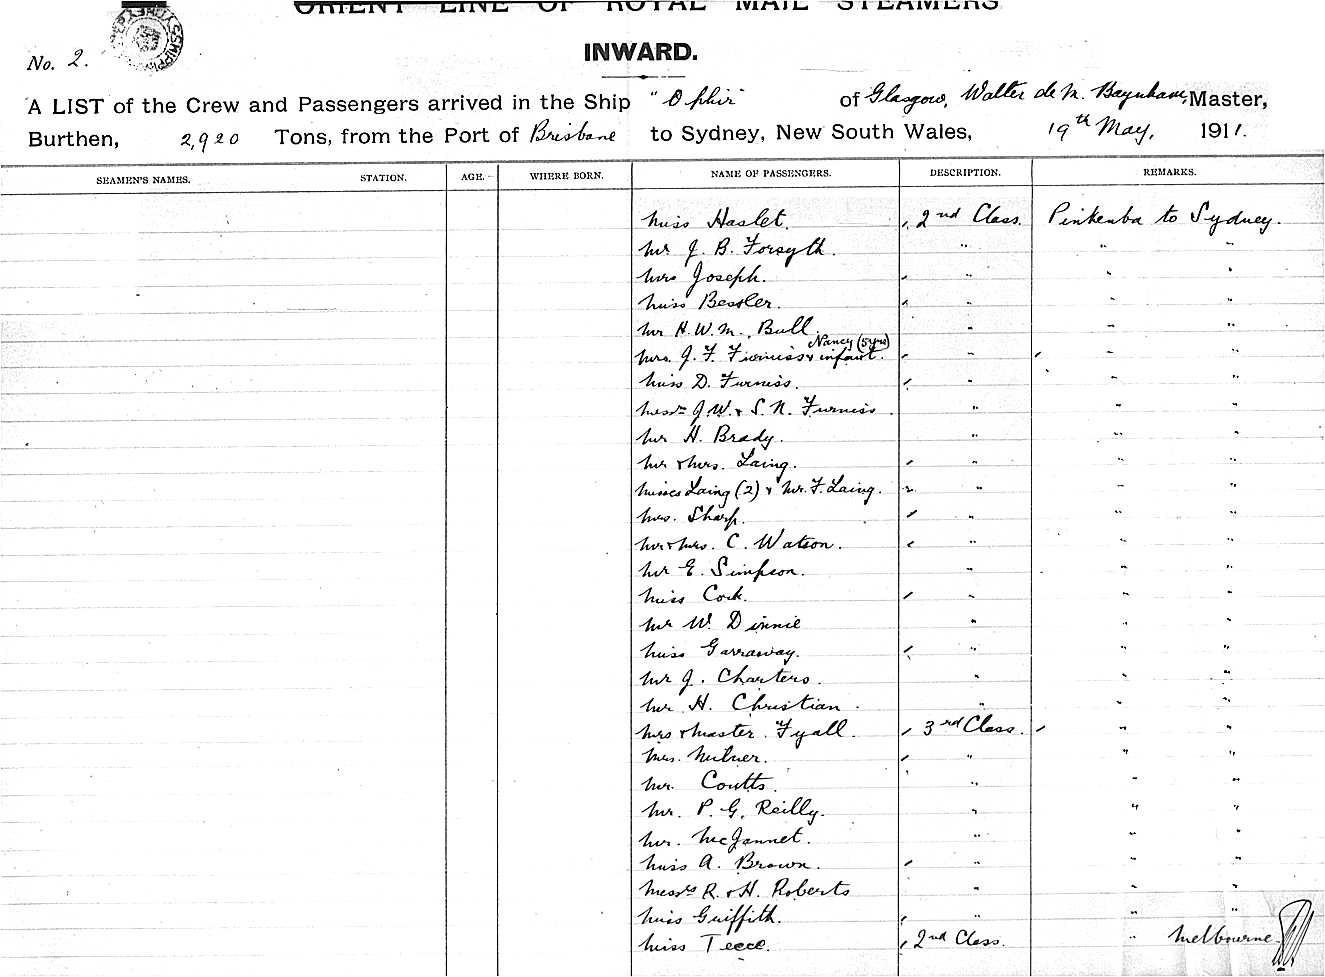 ORIENT LINE OF ROYAL MAIL STEAMERS
No. 2.
INWARD.
A LIST of the Crew and Passengers arrived in the Ship "Ophir" of Glasgow, Walter de M. Baynham, Master,
Burthen, 2,920 Tons, from the Port of Brisbane to Sydney, New South Wales, 19th May, 1911.
SEAMEN'S NAMES. STATION. AGE. WHERE BORN. NAME OF PASSENGERS. DESCRIPTION. REMARKS.
Miss Haslet. 2nd Class. Pinkenba to Sydney.
Mr J. B. Forsyth. " " "
Mrs Joseph. " " "
Miss Bessler. " " "
Mr H. W. M. Bull. " " "
Nancy (5 yrs)
Mrs. J. F. Furniss & infant. " " "
Miss D. Furniss. " " "
Messrs J. W. & S. N. Furniss " " "
Mr H. Brady. " " "
Mr & Mrs. Laing. " " "
Misses Laing (2) & Mr. F. Laing. " " "
Mrs. Sharp. " " "
Mr & Mrs. C. Watson. " " "
Mr E. Simpson. " " "
Miss Cork. " " "
Mr W. Dinnie " " "
Miss Garraway. " " "
Mr J. Charters. " " "
Mr H. Christian. " " "
Mrs & Master Fyall. 3rd Class. " "
Mrs. Milner. " " "
Mr. Coutts. " " "
Mr. P. G. Reilly. " " "
Mr. McJannet. " " "
Miss A. Brown. " " "
Messrs R. & H. Roberts " " "
Miss Griffith. " " "
Miss Teece. 2nd Class. " Melbourne.